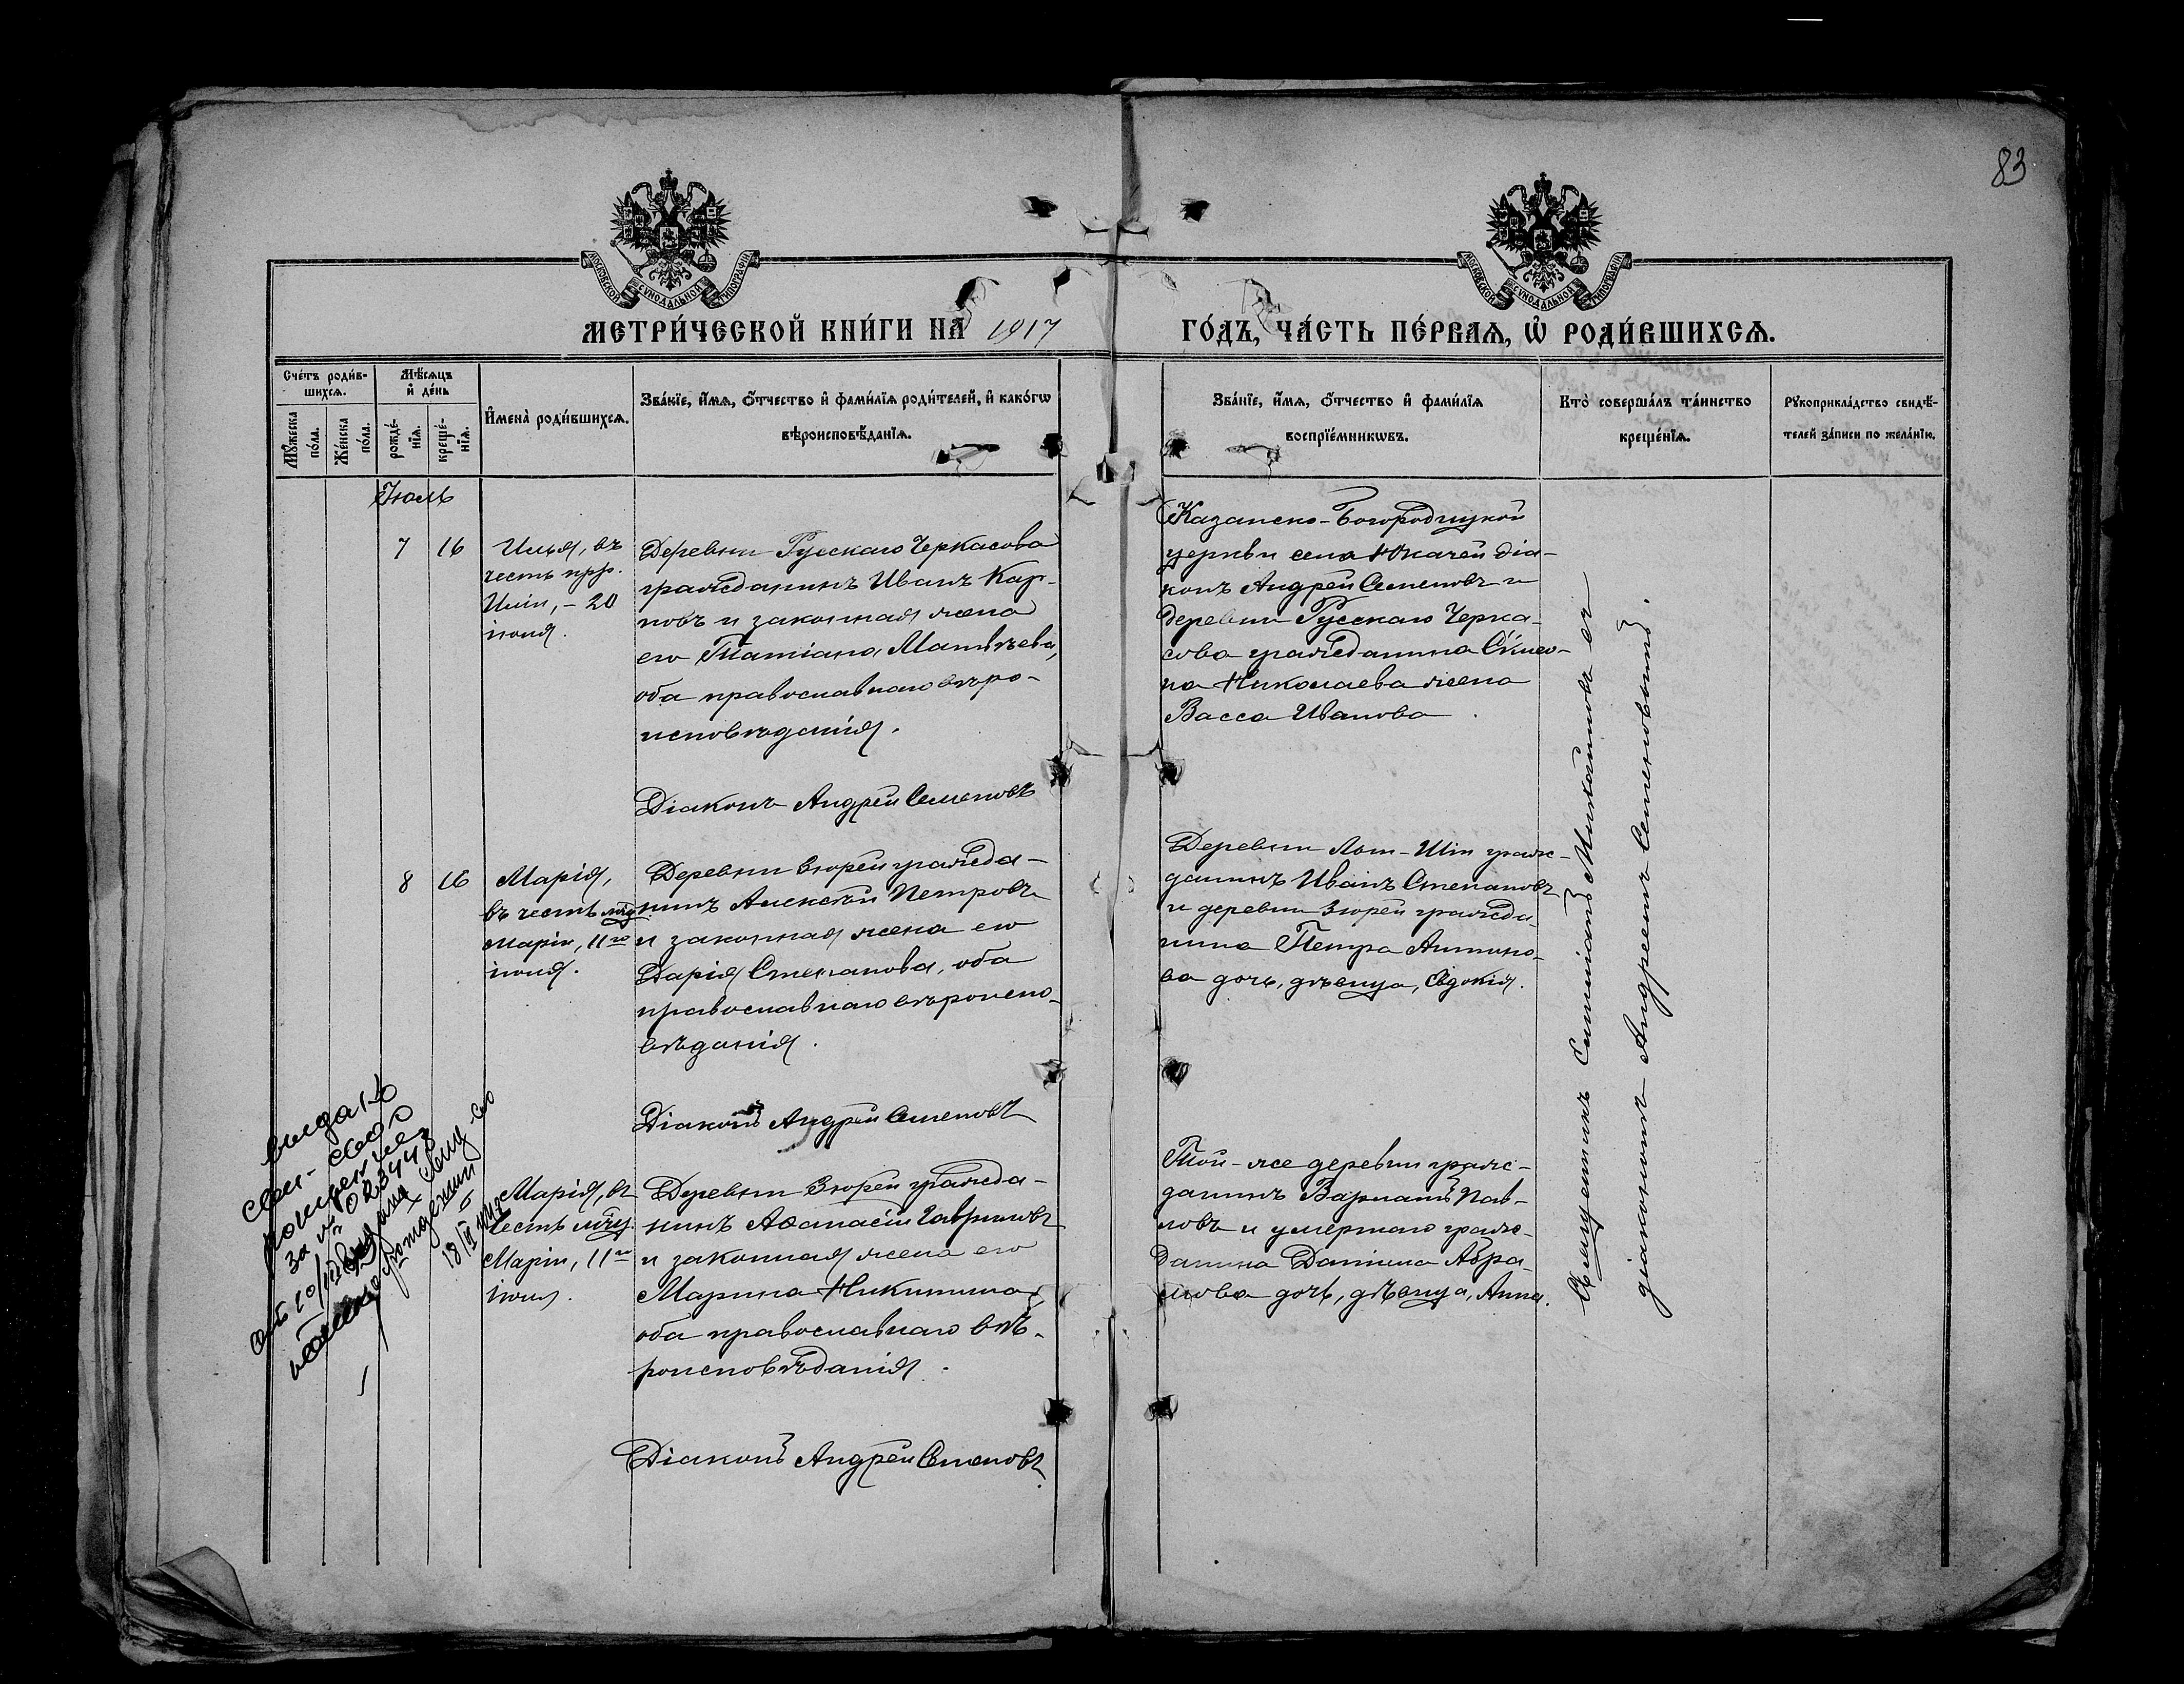 83
МОСКОВСКОЙ СѴНОДАЛЬНОЙ ТИПОГРАФІИ
МОСКОВСКОЙ СѴНОДАЛЬНОЙ ТИПОГРАФІИ
МЕТРИ́ЧЕСКОЙ КНИ́ГИ НА 1917
ГО́ДЪ, ЧА́СТЬ ПЕ́РВАѦ, Ѡ҆ РОДИ́ВШИХСѦ.
Сче́тъ роди́в-
шихсѧ.
Мѣ́сѧцъ
и҆ де́нь
Мꙋ́жеска
по́ла.
Же́нска
по́ла.
рожде́-
нїѧ.
креще́-
нїѧ.
И҆мена̀ роди́вшихсѧ.
Зва́нїе, и҆́мѧ, ѻ҆́тчество и҆ фами́лїѧ роди́телей, и҆ како́гѡ
вѣроисповѣ́данїѧ.
Зва́нїе, и҆́мѧ, ѻ҆́тчество и҆ фами́лїѧ
воспрїе́мникѡвъ.
Кто̀ соверша́лъ та́инство
креще́нїѧ.
Рꙋкоприкла́дство свидѣ́-
телей за́писи по жела́нїю.
Іюль
7 16
Илья, въ
честь прр.
Иліи, – 20
іюля.
Деревни Русскаго Черкасова
гражданинъ Иванъ Кар-
повъ и законная жена
его Татіана Матвѣева,
оба православнаго вѣро-
исповѣданія.
Діаконъ Андрей Семеновъ
Казанско-Богородицкой
церкви села Юкачей діа-
конъ Андрей Семеновъ и
деревни Русскаго Черка-
сова гражданина Симео-
на Николаева жена
Васса Иванова.
8 16
Марія,
въ честь мчц.
Маріи, 11го
іюля.
Деревни Зюрей гражда-
нинъ Алексѣй Петровъ
и законная жена его
Дарія Степанова, оба
православнаго вѣроиспо-
вѣданія.
Діаконъ Андрей Семеновъ
Деревни Лот-Шіи граж-
данинъ Иванъ Степановъ
и деревни Зюрей гражда-
нина Петра Антоно-
ва дочь, дѣвица, Евдокія.
Марія, въ
честь мчц.
Маріи, 11го
іюля.
Деревни Зюрей гражда-
нинъ Аѳанасій Гавриловъ
и законная жена его
Марина Никитина,
оба православнаго вѣ-
роисповѣданія.
Діаконъ Андрей Семеновъ.
Той-же деревни граж-
данинъ Варлаамъ Пав-
ловъ и умершаго граж-
данина Даніила Абра-
мова дочь, дѣвица, Анна.
Священникъ Михайловъ съ
діакономъ Андреемъ Семеновымъ.
выдано
за №